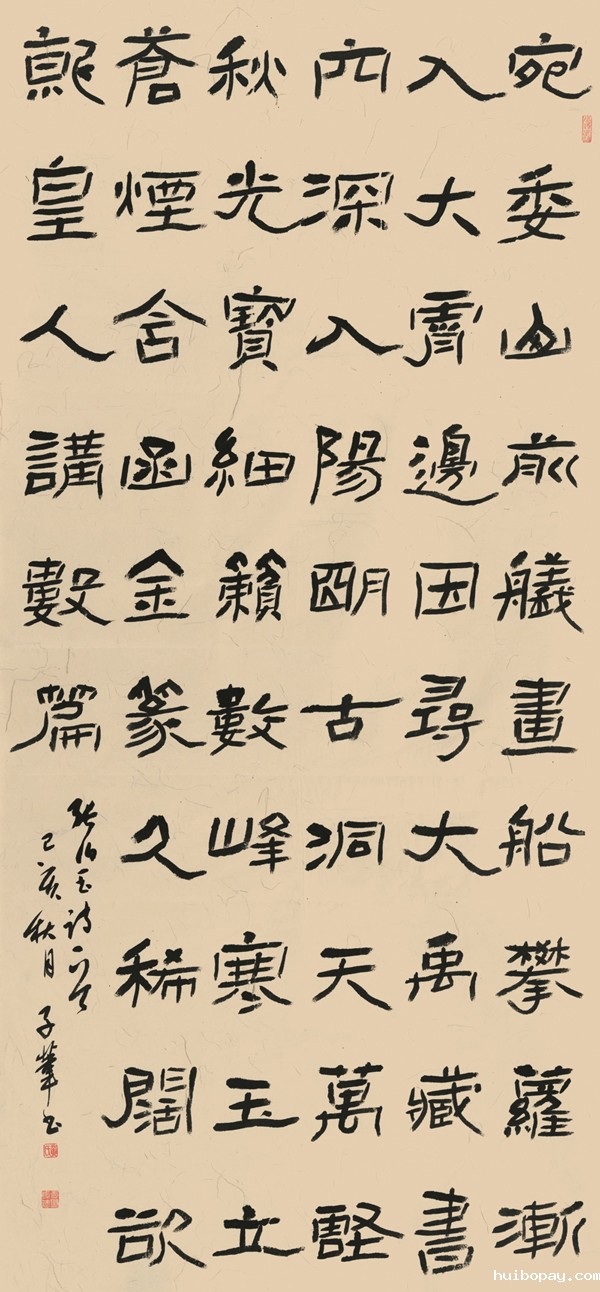 宛委山前艤畫船攀蘿漸
入大霄邊因尋大禹藏書
穴深入陽明古洞天萬壑
秋光寶細籟數峰寒玉立
蒼煙含函金篆久稀闊欲
就皇人講數篇
張伯玉詩一首
己亥秋月 子 书
huibopay.com